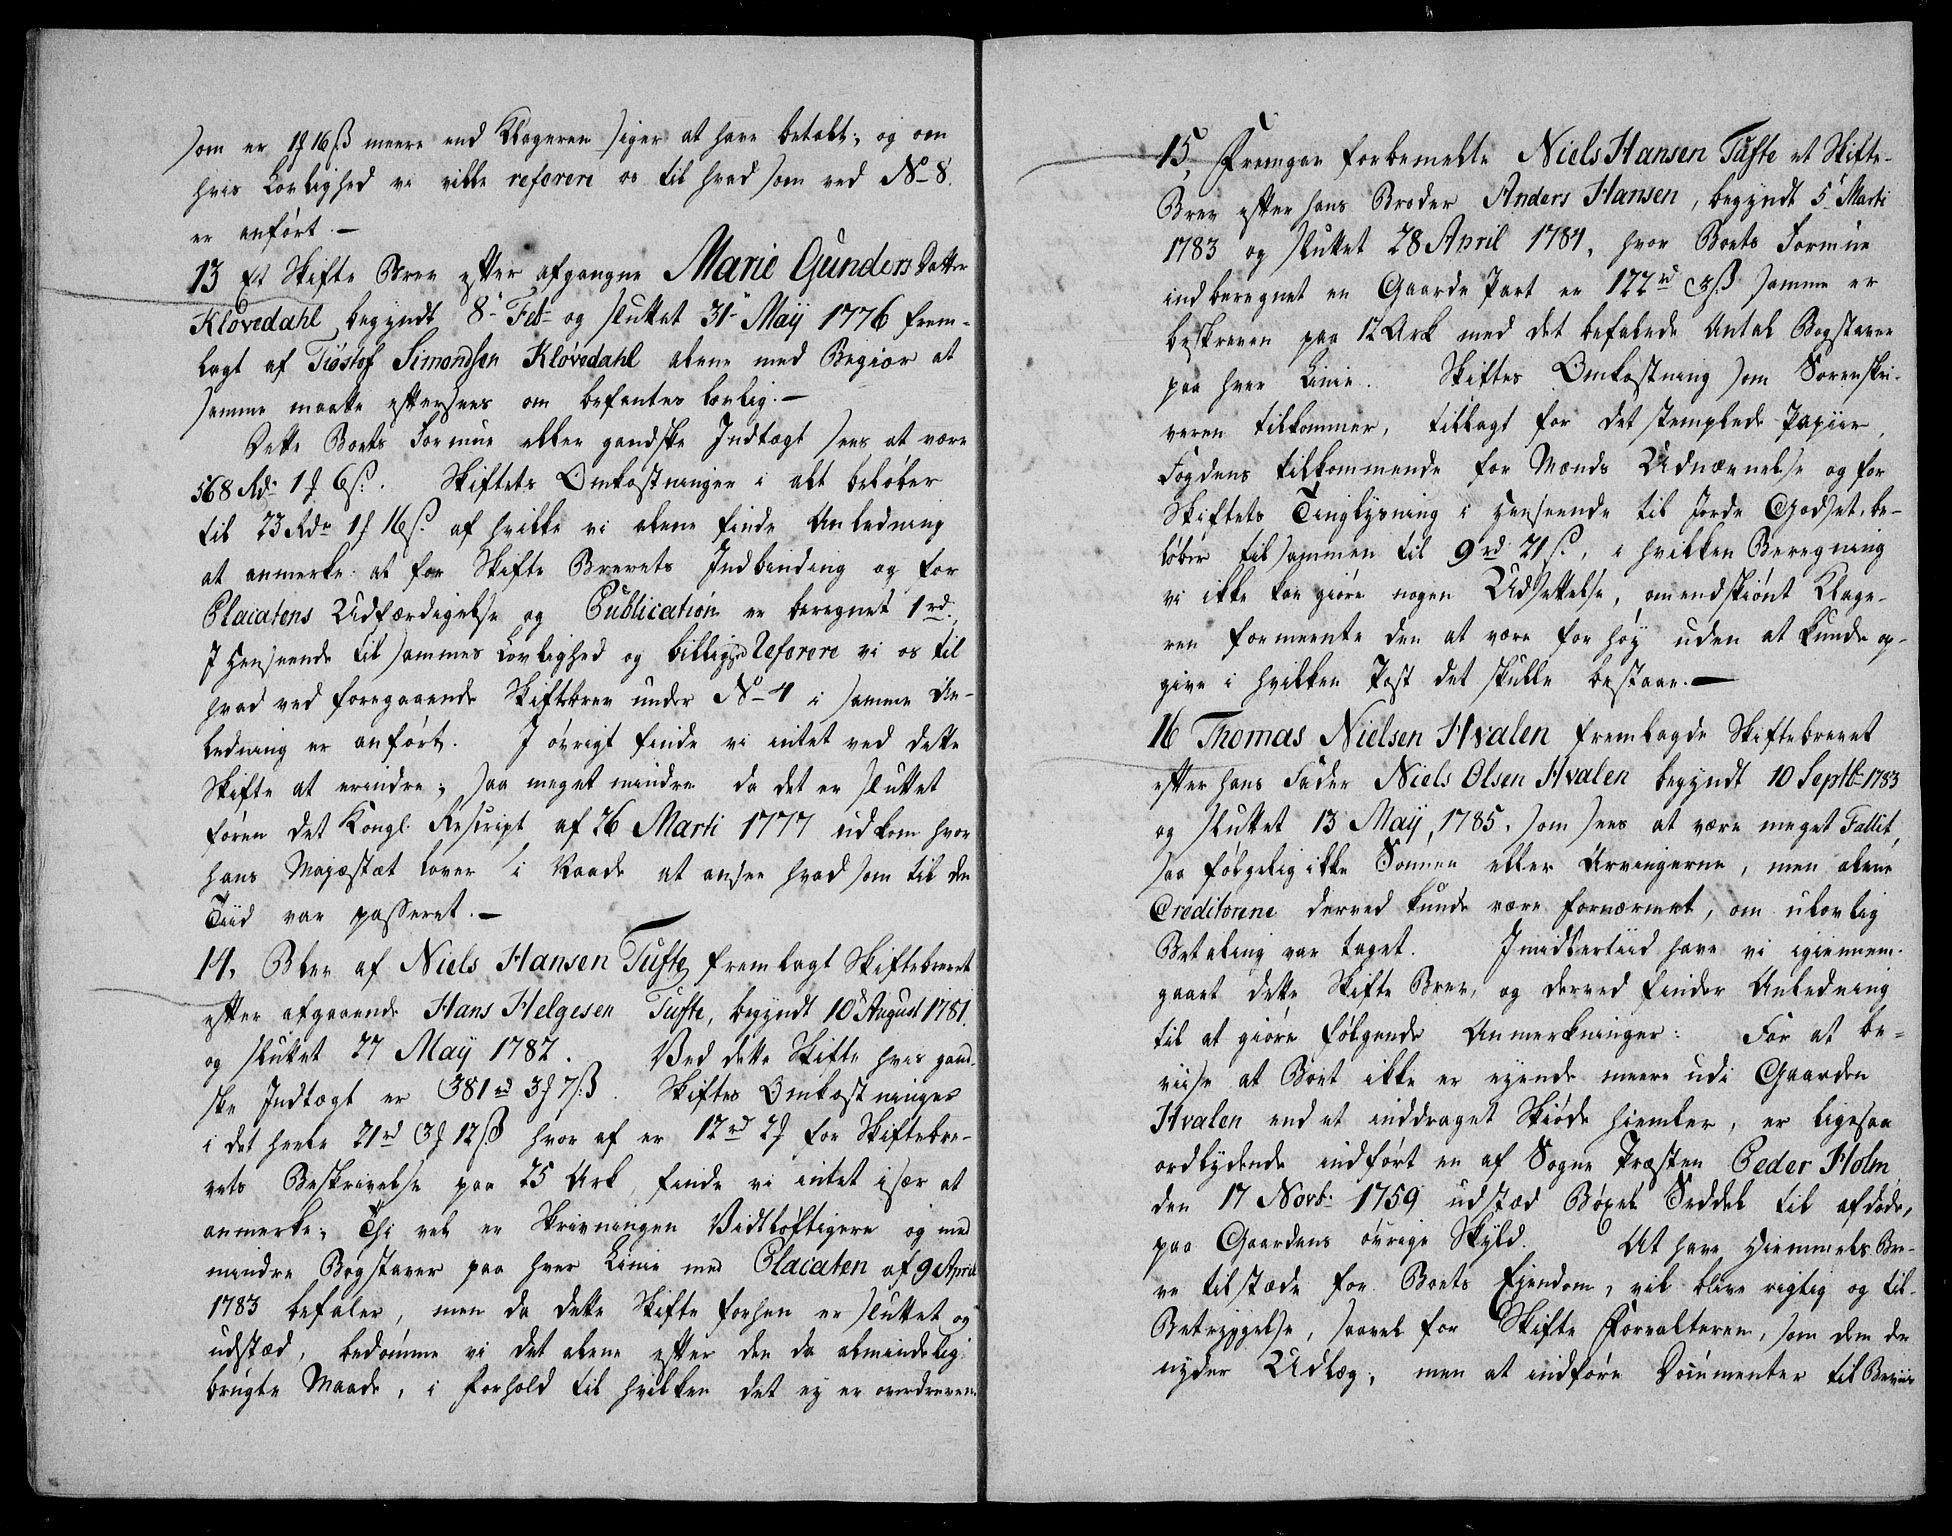 som er 1 f 16 ß meere end Klageren siger at have betalt; og om
hvis Lovlighed vi ville referere os til hvad som ved No 8.
er anført. —
13 Et Skifte Brev efter afgangne Marie Gunders Datter
Kløvedahl begyndt 8de Feb og sluttet 31 Maÿ 1776 frem-
lagt af Tiøstof Simondsen Kløvedahl alene med Begiør at
samme maatte eftersees om befantes lovlig. —
Dette Boets Formue eller gandske Indtægt sees at være
568 Rdr 1 f 6 ß. Skiftets Omkostninger i alt beløber
til 23 Rdr 1 f 16 ß. af hvilke vi alene finde Anledning
at anmerke: at for Skifte Brevets Indbinding og for
Placatens Udfærdigelse og Publication er beregnet 1 rd.
I Henseende til sammes Lovlighed og billighed referere vi os til
hvad ved foregaaende Skiftebrev under No 4 i samme An-
ledning er anført. I øvrigt finde vi intet ved dette
Skifte at erindre; saa meget mindre da det er sluttet
føren det Kongl. Rescript af 26 Marti 1777 udkom hvor
hans Majestæt lover i Naade at ansee hvad som til den
Tiid var passeret. —
14. Blev af Niels Hansen Tufte fremlagt Skiftebrevet
efter afgaaende Hans Helgesen Tufte, begyndt 10de August 1781.
og sluttet 27 Maÿ 1782. Ved dette Skifte hvis gand-
ske Indtægt er 381 rd 3 f 7 ß. Skiftes Omkostninger
i det heele 21 rd 3 f 12 ß hvor af er 12 rd 2 f for Skiftebre-
vets Beskrivelse paa 25 Ark, finde vi intet især at
anmerke; Thi vel er Skrivningen Vidtløftigere og med
mindre Bogstaver paa hver Linie end Placaten af 9 April
1783 befaler, men da dette Skifte forhen er sluttet og
udstæd, bedømme vi det alene efter den da almindelig
brugte Maade, i forhold til hvilken det ey er overdreven.
15, Fremgav forbemelte Niels Hansen Tufte et Skifte-
Brev efter hans Broder Anders Hansen, begyndt 5 Marti
1783 og sluttet 28 April 1784, hvor Boets Formue
indberegnet en Gaarde Part er 122 rd 3 ß samme er
beskreven paa 12 Ark med det befalede Antal Bogstaver
paa hver Linie. Skiftes Omkostning som Sorenskri-
veren tilkommer, tillagt for det stemplede Papiir,
Fogdens tilkommende for Mænds Udnævnelse og for
Skiftets Tinglysning i henseende til Jorde Godset, be-
løber tilsammen til 9 rd 21 ß, i hvilken Beregning
vi ikke kan giøre nogen Udsettelse, omendskiønt Klage-
ren formeente den at være for høy uden at kunde op-
give i hvilken Post det skulle bestaae. —
16 Thomas Nielsen Hvalen fremlagde Skiftebrevet
efter hans Fader Niels Olsen Hvalen begyndt 10 Septbr 1783
og sluttet 13 Maÿ, 1785, som sees at være meget Fallit,
saa følgelig ikke Sønnen eller Arvingerne, men alene
Creditorene derved kunde være fornærmet, om ulovlig
Betaling var taget. Imidlertiid have vi igiennem-
gaaet dette Skifte Brev, og derved finder Anledning
til at giøre følgende Anmerkninger: For at be-
viise at Boet ikke er eyende meere udi Gaarden
Hvalen end et inddraget Skiøde hiemler, er ligesaa
ordlydende indført en af Sogne Præsten Peder Holm
den 17 Novb: 1759 udstæd Bøxel Seddel til afdøde,
paa Gaardens øvrige Skyld. At have Hiemmels Bre-
ve tilstæde for Boets Ejendom, vil blive rigtig og til
Betryggelse, saavel for Skifte Forvalteren, som dem der
nyder Udlæg, men at indføre Documenter til Beviis